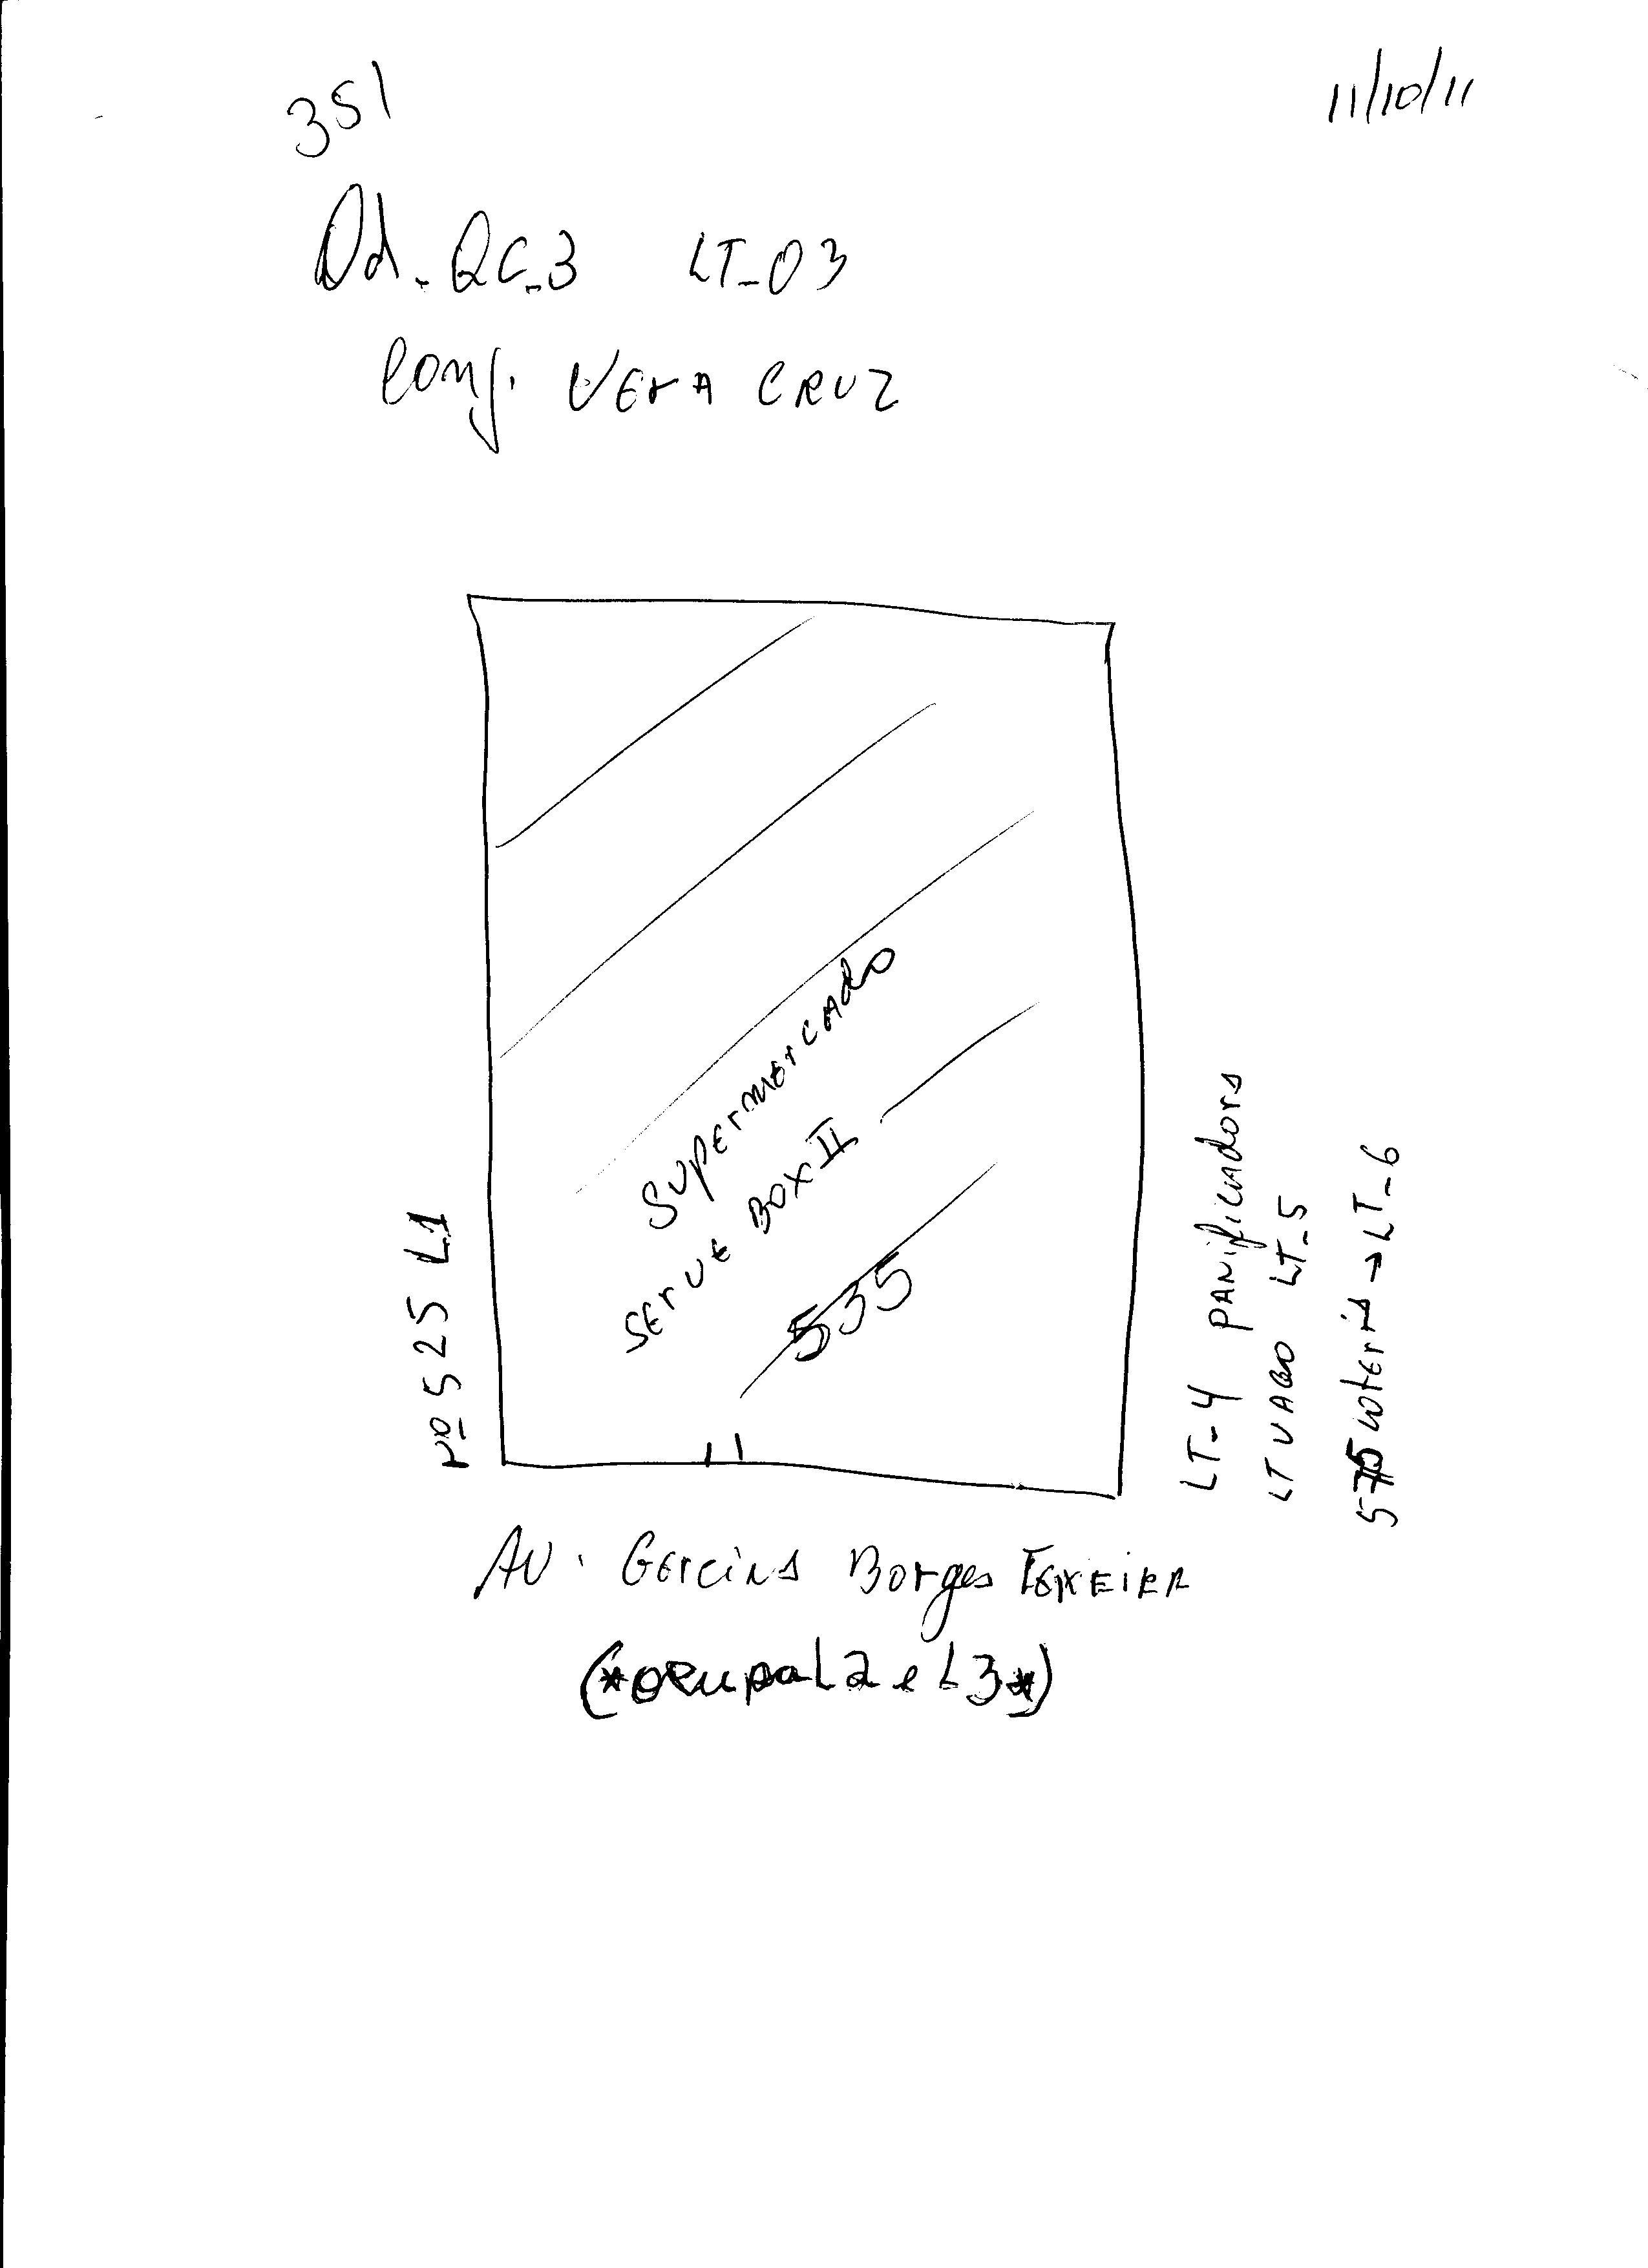 351
11/10/11
Qd. QC-3 LT-03
Conj. VERA CRUZ
Supermercado
SERVE BOX II
535
Nº 525 L1
LT-4 PANificadora
LT VAGO LT-5
575 Loteria → LT-6
AV. Gercina Borges TEIXEIRA
(*ocupa L2 e L3*)